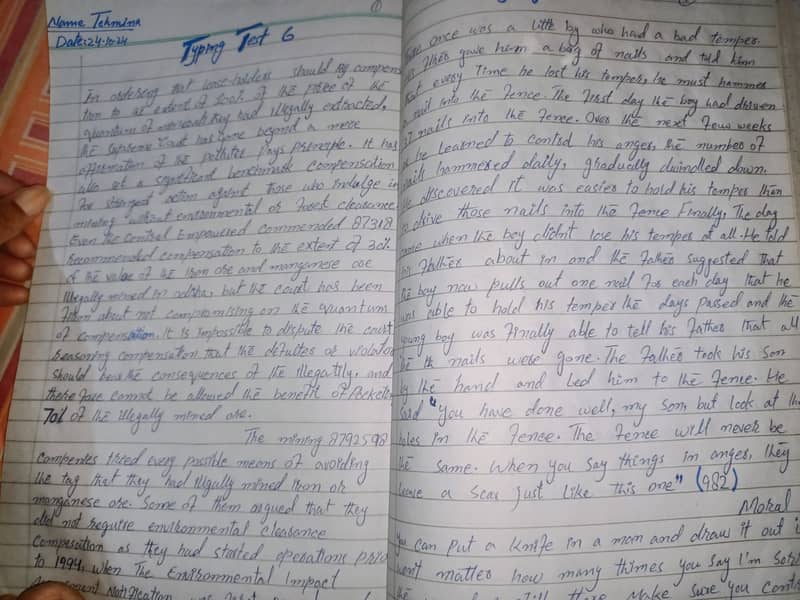 Name Tehmina
Date: 24-10-24
Typing Test 6
In ordering that lease-holders should pay compens
tion to at extent of 100% of the price of the
quantum of minerals they had illegally extracted,
the Supreme Court has gone beyond a mere
affirmation of the polluter pays principle. It has
also set a significant benchmark compensation
for stringent action against those who indulge in
mining without environmental or forest clearance.
Even the Central Empowered commended 87318
Recommended compensation to the extent of 30%
of the value of the Iron ore and manganese ore
Illegally mined in odisha, but the court has been
firm about not compromising on the quantum
of compensation. It is impossible to dispute the court
Reasoning compensation that the defulters or violator
should bear the consequences of the illegatily, and
there fore cannot be allowed the benefit of
70% of the illegally mined ore.
The mining 8792598
Companies tried every possible means of avoiding
the tag that they had illegully mined Iron or
manganese ore. Some of them argued that they
did not require environmental clearance
Compesation as they had started operations prio
to 1994, when The Environmental Impact
Notification was
once was a little by who had a bad temper.
father gave him a bag of nails and told him
that every time he lost his temper, he must hammer
nail into the fence. The first day the boy had driven
37 nails into the fence. Over the next few weeks
he learned to control his anger, the number of
nails hammered daily, gradually dwindled down.
discovered it was easier to hold his temper then
drive those nails into the fence Finally, The day
when the boy didn't lose his temper at all. He told
his father about im and the father suggested that
the boy now pulls out one nail for each day that he
was able to hold his temper the days passed and the
young boy was finally able to tell his father that all
the nails were gone. The father took his son
by the hand and led him to the fence. He
said "You have done well, my son, but look at th
holes in the fence. The fence will never be
the same. When you say things in anger, they
leave a scar just like this one" (982)
Moral
You can put a knife in a man and draw it out i
won't matter how many thimes you say I'm Sorr
there Make sure you contr